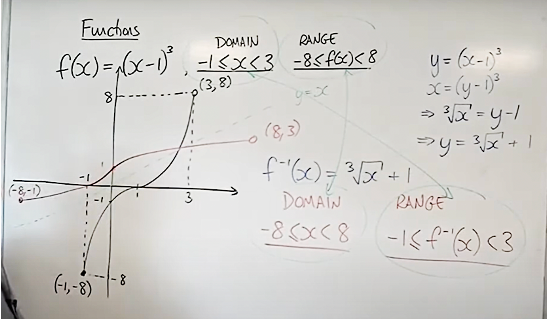 Functions
f(x) = (x-1)³, DOMAIN -1 ≤ x < 3
RANGE -8 ≤ f(x) < 8
8
(3,8)
y=x
(8,3)
1
-1
(-8,-1)
-1
1
3
(-1,-8)
-8
y = (x-1)³
x = (y-1)³
⇒ ³√x = y-1
⇒ y = ³√x + 1
f⁻¹(x) = ³√x + 1
DOMAIN
-8 ≤ x < 8
RANGE
-1 ≤ f⁻¹(x) < 3